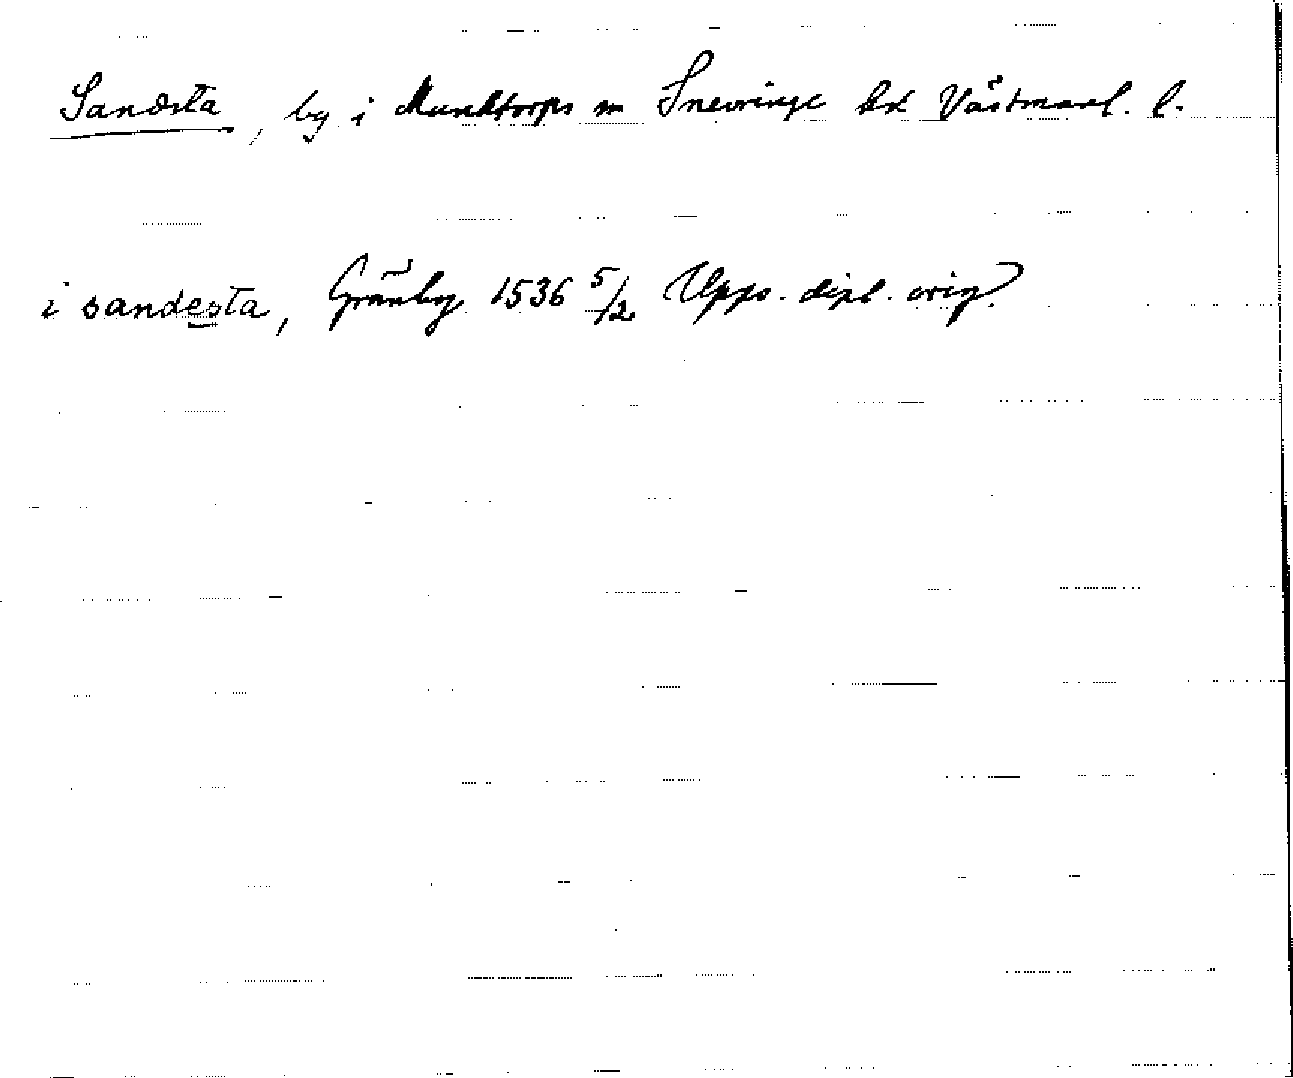 Sandsta, by i Munktorps sn Snevringe hd Västmanl. l.
i sandesta, Gränby 1536 5/2 Upps. dipl. orig.